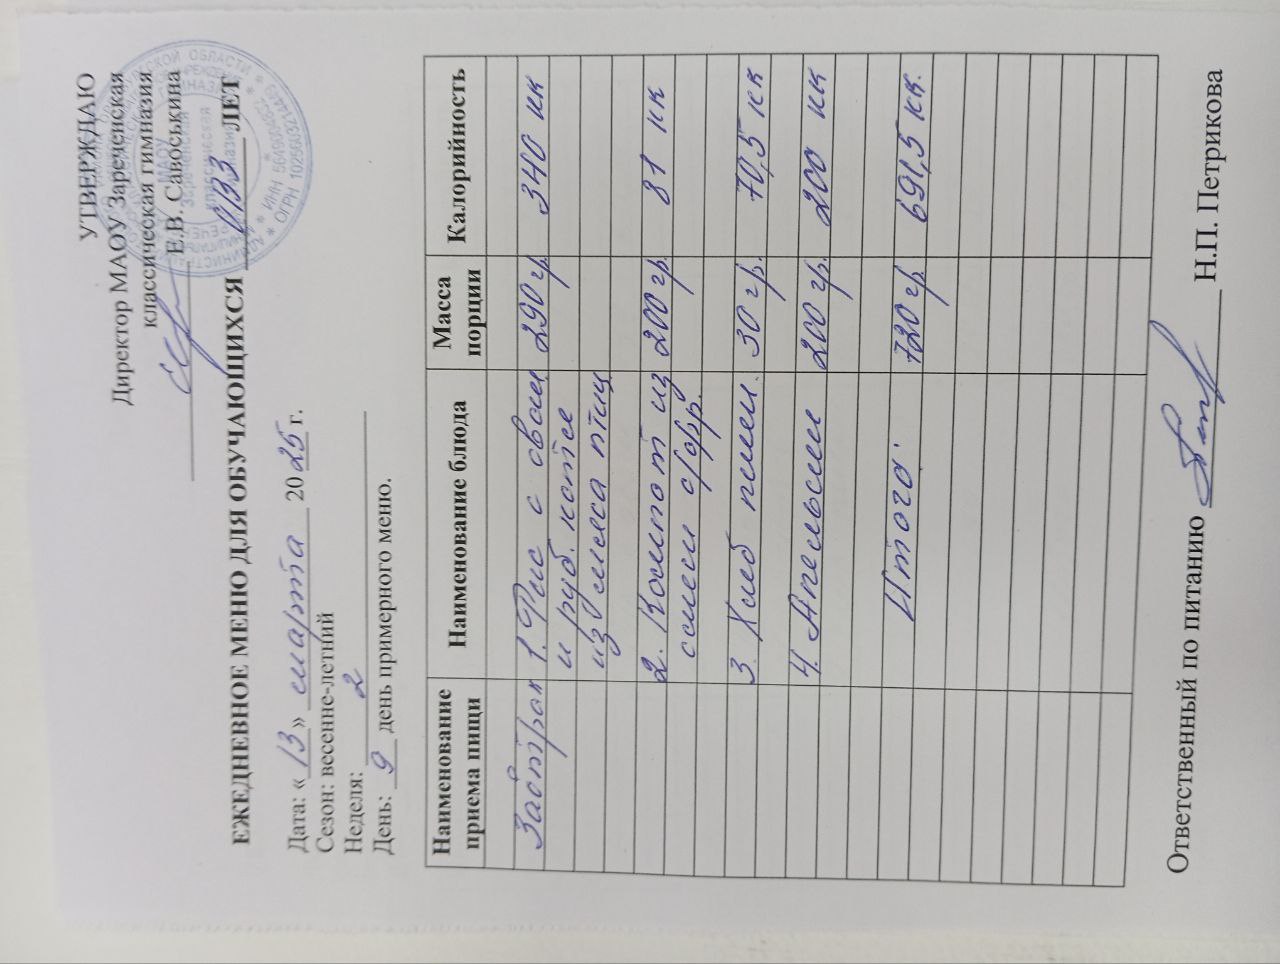 УТВЕРЖДАЮ
Директор МАОУ Зареченская
классическая гимназия
Е.В. Савоськина
ЕЖЕДНЕВНОЕ МЕНЮ ДЛЯ ОБУЧАЮЩИХСЯ ОВЗ ЛЕТ
Дата: «13» марта 2025 г.
Сезон: весенне-летний
Неделя: 2
День: 9 день примерного меню.
Наименование приема пищи Наименование блюда Масса порции Калорийность
Завтрак 1. Рис с овощ 290 гр. 340 кк
и руб. котл
из мяса птиц
2. Компот из 200 гр. 81 кк
смеси с/фр.
3. Хлеб пшен. 30 гр. 70,5 кк
4. Апельсин 200 гр. 200 кк
Итого: 720 гр. 691,5 кк.
Ответственный по питанию Н.П. Петрикова